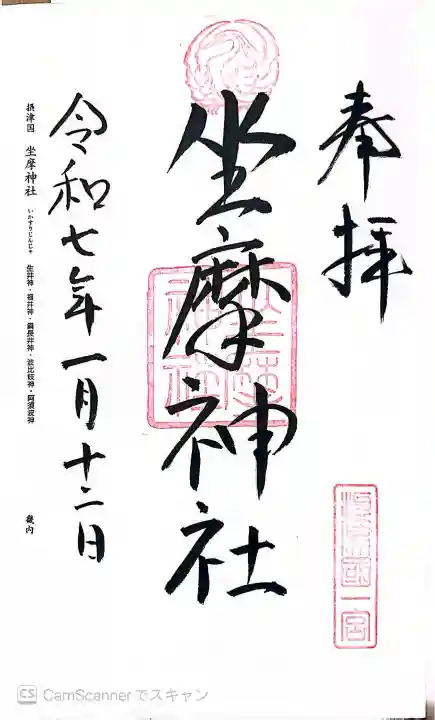 奉拝
摂津国一宮
坐摩神社
坐摩神社
令和七年一月十二日
摂津国 坐摩神社 いかすりじんじゃ 生井神・福井神・綱長井神・波比祇神・阿須波神 畿内
CS CamScannerでスキャン